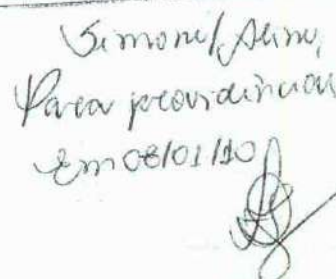 Simone/Aline,
Para providências
Em 08/01/10